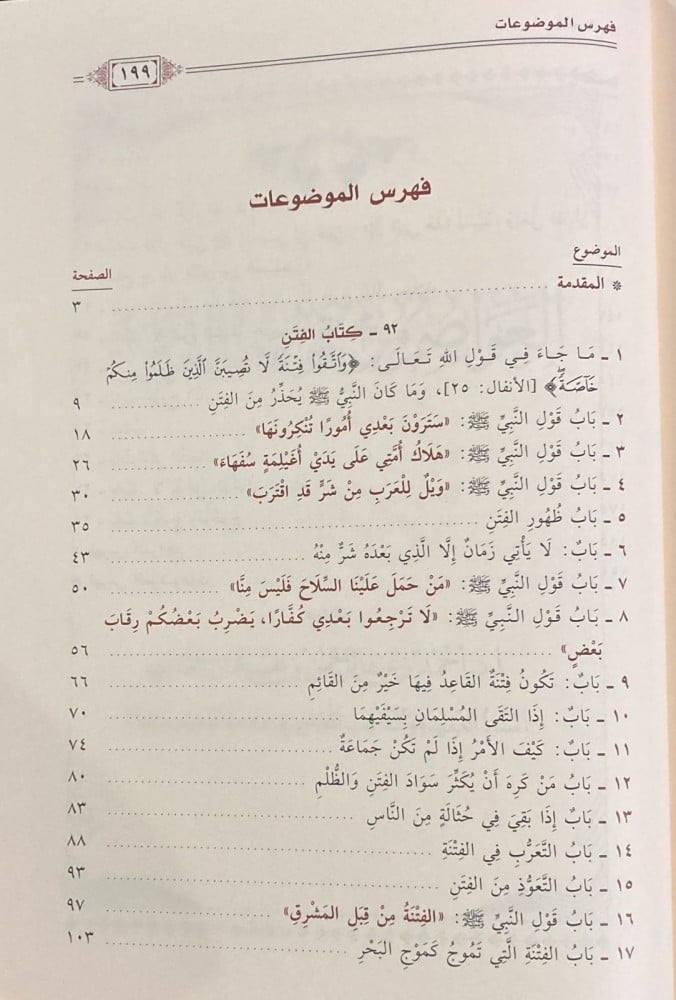 فهرس الموضوعات
١٩٩
فهرس الموضوعات
الموضوع
الصفحة
* المقدمة ........ ٣
٩٢ ـ كِتَابُ الفِتَنِ
١ ـ مَا جَاءَ فِي قَوْلِ اللهِ تَعَالَى: ﴿وَٱتَّقُوا۟ فِتْنَةً لَّا تُصِيبَنَّ ٱلَّذِينَ ظَلَمُوا۟ مِنكُمْ
خَآصَّةً﴾ [الأنفال: ٢٥]، وَمَا كَانَ النَّبِيُّ ﷺ يُحَذِّرُ مِنَ الفِتَنِ ........ ٩
٢ ـ بَابُ قَوْلِ النَّبِيِّ ﷺ: «سَتَرَوْنَ بَعْدِي أُمُورًا تُنْكِرُونَهَا» ........ ١٨
٣ ـ بَابُ قَوْلِ النَّبِيِّ ﷺ: «هَلَاكُ أُمَّتِي عَلَى يَدَيْ أُغَيْلِمَةٍ سُفَهَاءَ» ........ ٢٦
٤ ـ بَابُ قَوْلِ النَّبِيِّ ﷺ: «وَيْلٌ لِلْعَرَبِ مِنْ شَرٍّ قَدِ اقْتَرَبَ» ........ ٣٠
٥ ـ بَابُ ظُهُورِ الفِتَنِ ........ ٣٥
٦ ـ بَابٌ: لَا يَأْتِي زَمَانٌ إِلَّا الَّذِي بَعْدَهُ شَرٌّ مِنْهُ ........ ٤٣
٧ ـ بَابُ قَوْلِ النَّبِيِّ ﷺ: «مَنْ حَمَلَ عَلَيْنَا السِّلَاحَ فَلَيْسَ مِنَّا» ........ ٥٠
٨ ـ بَابُ قَوْلِ النَّبِيِّ ﷺ: «لَا تَرْجِعُوا بَعْدِي كُفَّارًا، يَضْرِبُ بَعْضُكُمْ رِقَابَ
بَعْضٍ» ........ ٥٦
٩ ـ بَابٌ: تَكُونُ فِتْنَةٌ القَاعِدُ فِيهَا خَيْرٌ مِنَ القَائِمِ ........ ٦٦
١٠ ـ بَابٌ: إِذَا التَقَى المُسْلِمَانِ بِسَيْفَيْهِمَا ........ ٧٠
١١ ـ بَابٌ: كَيْفَ الأَمْرُ إِذَا لَمْ تَكُنْ جَمَاعَةٌ ........ ٧٤
١٢ ـ بَابُ مَنْ كَرِهَ أَنْ يُكَثِّرَ سَوَادَ الفِتَنِ وَالظُّلْمِ ........ ٨٠
١٣ ـ بَابٌ إِذَا بَقِيَ فِي حُثَالَةٍ مِنَ النَّاسِ ........ ٨٣
١٤ ـ بَابُ التَّعَرُّبِ فِي الفِتْنَةِ ........ ٨٨
١٥ ـ بَابُ التَّعَوُّذِ مِنَ الفِتَنِ ........ ٩٣
١٦ ـ بَابُ قَوْلِ النَّبِيِّ ﷺ: «الفِتْنَةُ مِنْ قِبَلِ المَشْرِقِ» ........ ٩٧
١٧ ـ بَابُ الفِتْنَةِ الَّتِي تَمُوجُ كَمَوْجِ البَحْرِ ........ ١٠٣